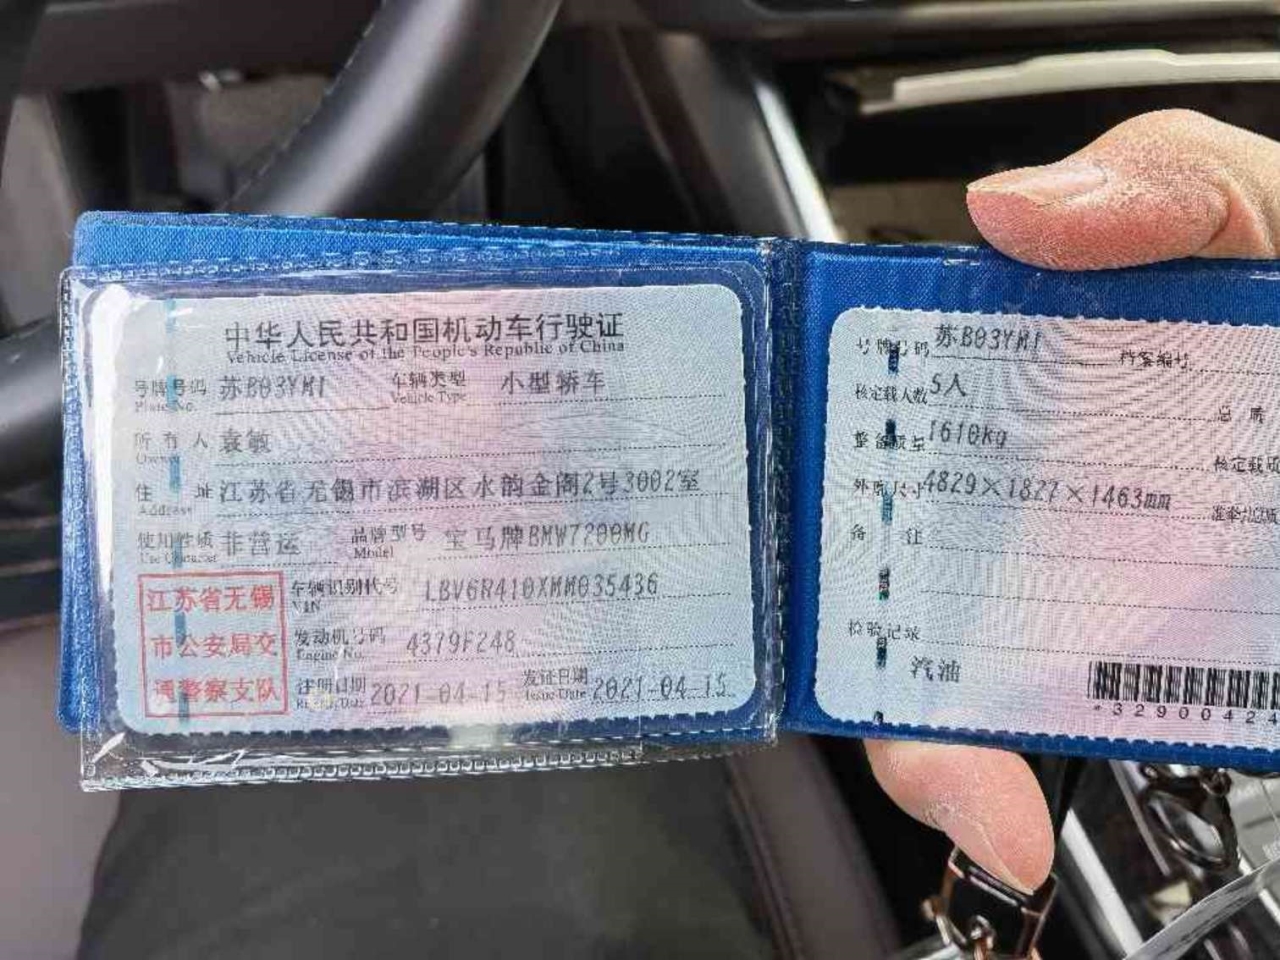 中华人民共和国机动车行驶证
Vehicle License of the People's Republic of China
号牌号码 苏B03YM1 车辆类型 小型轿车
Plate No. Vehicle Type
所有人 袁敏
Owner
住址 江苏省无锡市滨湖区水韵金阁2号3002室
Address
使用性质 非营运 品牌型号 宝马牌BMW7200MG
Use Character Model
江苏省无锡
市公安局交
通警察支队
车辆识别代号 LBV6R410XMM035436
VIN
发动机号码 4379F248
Engine No.
注册日期 2021-04-15 发证日期 2021-04-15
Register Date Issue Date
号牌号码 苏B03YM1 档案编号
核定载人数 5人 总质
整备质量 1610kg 核定载质
外廓尺寸 4829×1827×1463mm 准牵引总质
备注
检验记录
汽油
*32900424